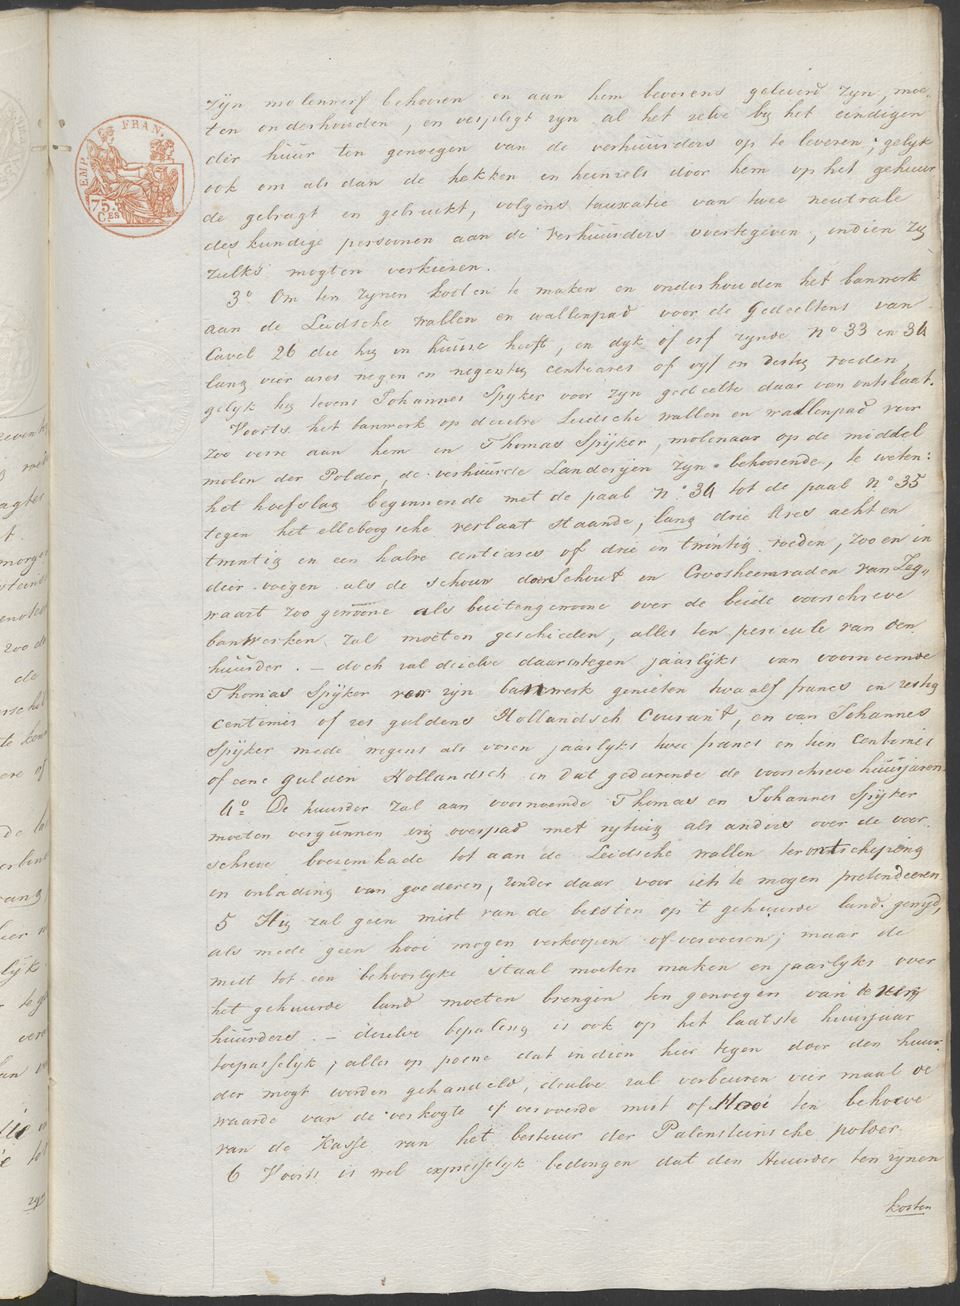 EMP. FRAN.
75. C.ES
zijn molenwerf behooren en aan hem bevorens geleverd zijn, moe-
ten onderhouden, en verpligt zijn al het zelve bij het eindigen
der huur ten genoegen van de verhuurders op te leveren; gelijk
ook om als dan de hekken en heinzels door hem op het gehuur
de gebragt en gebruikt, volgens tauxatie van twee neutrale
des kundige personen aan de verhuurders overtegeven, indien zij
zulks mogten verkiezen.
3o Om ten zijnen kosten te maken en onderhouden het banwerk
aan de Leidsche wallen en wallenpad voor de Gedeeltens van
Cavel 26 die hij in huure heeft, en dijk of erf zijnde No 33 en 34
lang vier ares negen en negentig centiares of vijf en dertig roeden
gelijk hij tevens Johannes Spijker voor zijn gedeelte daar van ontslaat.
Voorts het banwerk op dezelve Leidsche wallen en wallenpad voor
zoo verre aan hem en Thomas Spijker, molenaar op de middel
molen der Polder, de verhuurde Landerijen zijn behoorende, te weten:
het hoefslag beginnende met de paal No 34 tot de paal No 35
tegen het elleboogsche verlaat staande, lang drie Ares acht en
twintig en een halve centiares of drie en twintig roeden, zoo en in
dier voegen als de schouw door Schout en Croosheemraden van Zeg„
waart zoo gewoone als buitengewoone over de beide voorschreve
banwerken zal moeten geschieden, alles ten pericule van den
huurder. – doch zal dezelve daarentegen jaarlijks van voornoemde
Thomas Spijker voor zijn banwerk genieten twaalf francs en zestig
centimes of zes guldens Hollandsch Courant, en van Johannes
Spijker mede wegens als voren jaarlijks twee francs en tien Centimes
of eene gulden Hollandsch en dat gedurende de voorschreve huurjaren
4o De huurder zal aan voornoemde Thomas en Johannes Spijker
moeten vergunnen vrij overpad met rijtuig als anders over de voor
schreve boezemkade tot aan de Leidsche wallen ter ontscheping
en onlading van goederen, zonder daar voor iets te mogen pretendeeren
5 Hij zal geen mist van de beesten op 't gehuurde land gemijd,
als mede geen hooi mogen verkoopen of vervoeren; maar de
mist tot een behoorlijke staal moeten maken en jaarlijks over
het gehuurde land moeten brengen ten genoegen van de ver
huurders. – dezelve bepaling is ook op het laatste huurjaar
toepasselijk; alles op poene dat indien hier tegen door den huur
der mogt worden gehandeld, dezelve zal verbeuren vier maal de
waarde van de verkogte of vervoerde mist of Hooi ten behoeve
van de Kasse van het bestuur der Palensteinsche polder.
6 Voorts is wel expresselijk bedongen dat den Huurder ten zijnen
kosten